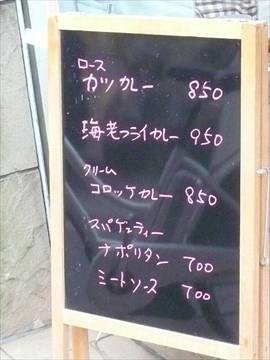 ロース
カツカレー 850
海老フライカレー 950
クリーム
コロッケカレー 850
スパゲティー
ナポリタン 700
ミートソース 700